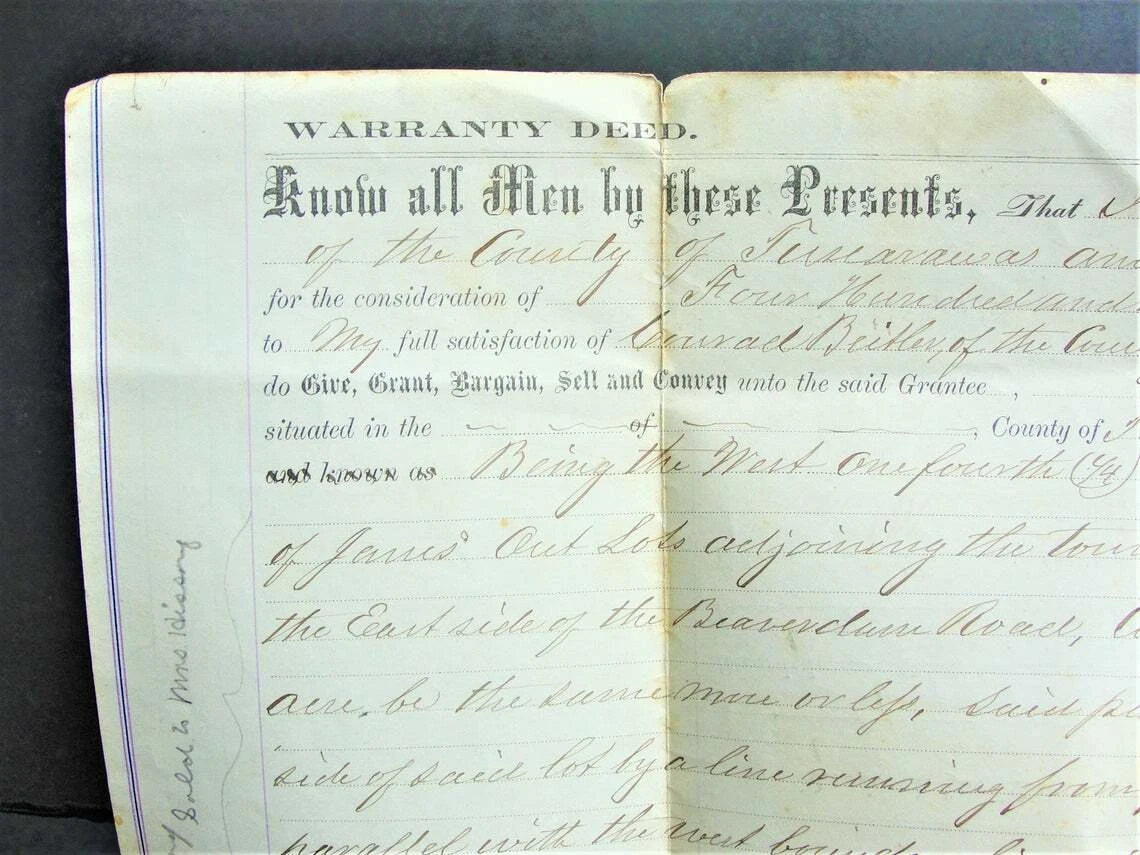 WARRANTY DEED.
Know all Men by these Presents, That
of the County of Tuscarawas and
for the consideration of Four Hundred and
to My full satisfaction of Conrad Beitler, of the Coun
do Give, Grant, Bargain, Sell and Convey unto the said Grantee ,
situated in the of , County of
and known as Being the West One fourth (1/4)
of Janes' Out Lots adjoining the tow
the East side of the Beaverdam Road,
acre, be the same more or less, said
side of said lot by a line running from
parallel with the west
Sold to Mrs